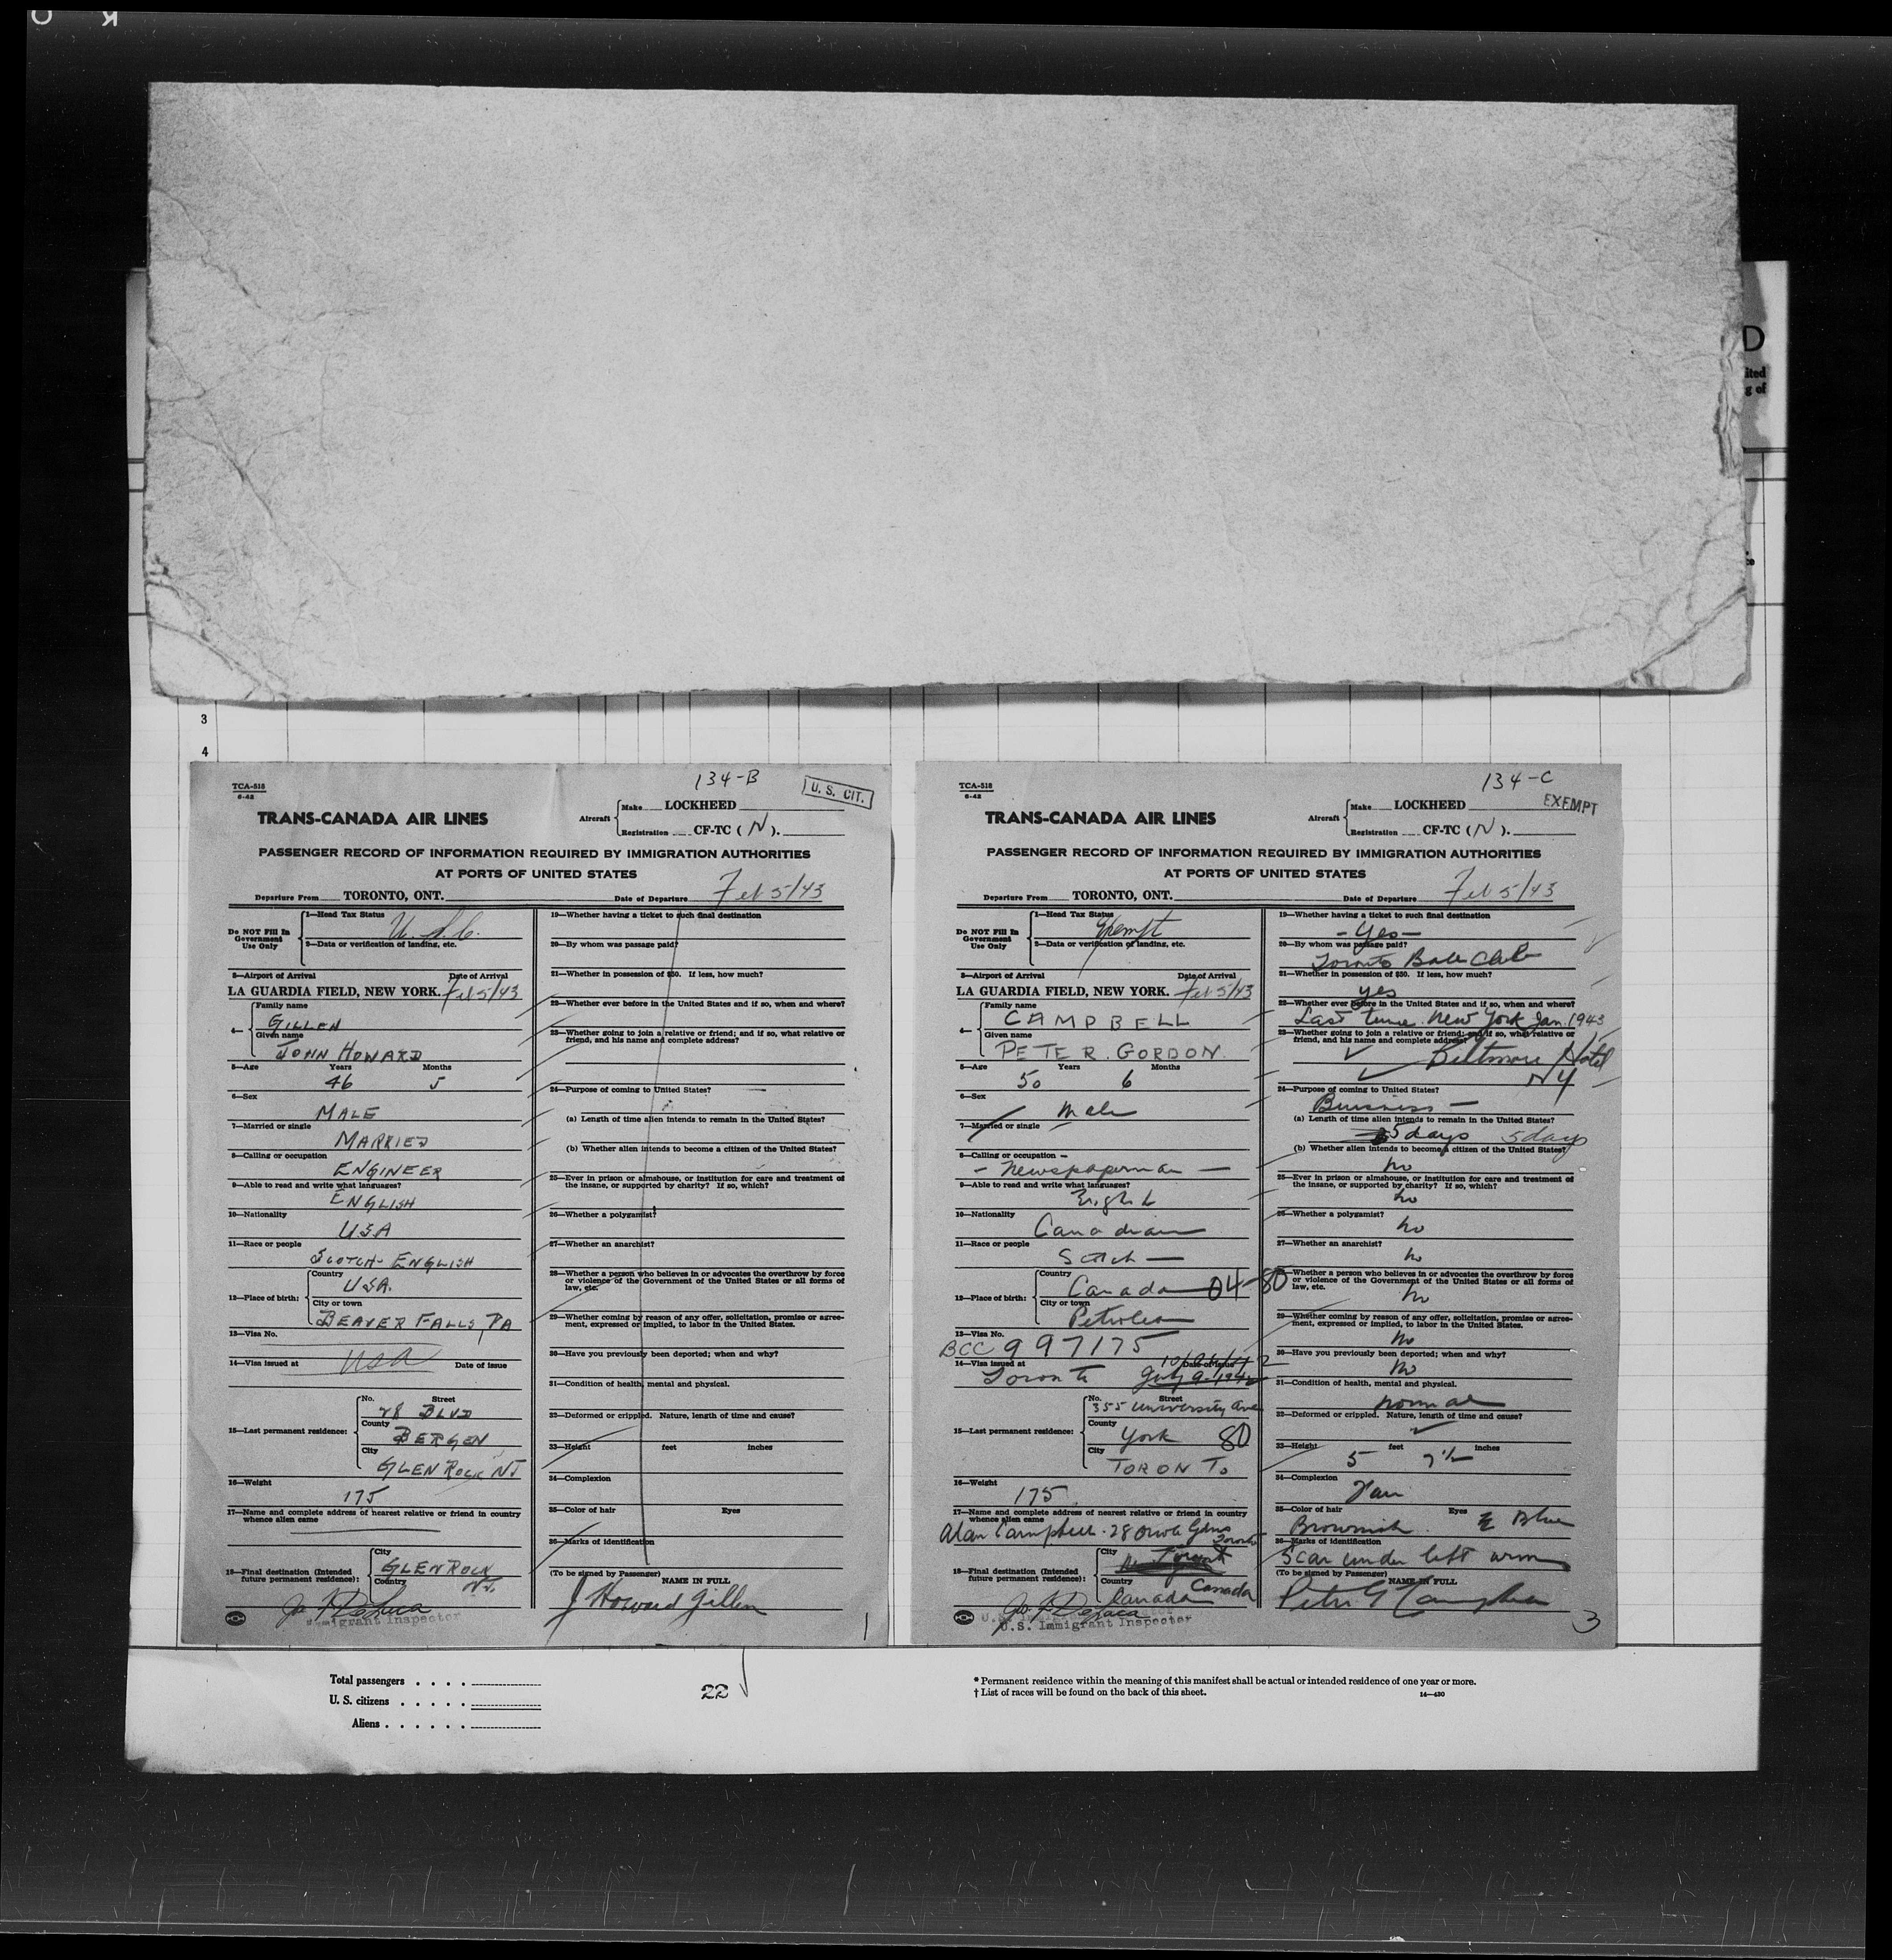 O K
D
ited
g of
ce
3
4
TCA-518
6-42
134-B
U. S. CIT.
TRANS-CANADA AIR LINES
Aircraft
Make LOCKHEED
Registration CF-TC (N).
PASSENGER RECORD OF INFORMATION REQUIRED BY IMMIGRATION AUTHORITIES
AT PORTS OF UNITED STATES
Departure From TORONTO, ONT.
Date of Departure Feb 5/43
Do NOT Fill In
Government
Use Only
1—Head Tax Status
U.S.C.
2—Data or verification of landing, etc.
3—Airport of Arrival Date of Arrival
LA GUARDIA FIELD, NEW YORK. Feb 5/43
4—
Family name
GILLEN
Given name
JOHN HOWARD
5—Age Years Months
46 5
6—Sex
MALE
7—Married or single
MARRIED
8—Calling or occupation
ENGINEER
9—Able to read and write what languages?
ENGLISH
10—Nationality
USA
11—Race or people
SCOTCH-ENGLISH
12—Place of birth:
Country
USA.
City or town
BEAVER FALLS, PA
13—Visa No.
USA
14—Visa issued at Date of issue
15—Last permanent residence:
No. Street
28 BLVD
County
BERGEN
City
GLEN ROCK NJ
16—Weight
175
17—Name and complete address of nearest relative or friend in country
whence alien came
18—Final destination (Intended
future permanent residence):
City
GLEN ROCK
Country
NJ.
Immigrant Inspector
19—Whether having a ticket to such final destination
20—By whom was passage paid?
21—Whether in possession of $50. If less, how much?
22—Whether ever before in the United States and if so, when and where?
23—Whether going to join a relative or friend; and if so, what relative or
friend, and his name and complete address?
24—Purpose of coming to United States?
(a) Length of time alien intends to remain in the United States?
(b) Whether alien intends to become a citizen of the United States?
25—Ever in prison or almshouse, or institution for care and treatment of
the insane, or supported by charity? If so, which?
26—Whether a polygamist?
27—Whether an anarchist?
28—Whether a person who believes in or advocates the overthrow by force
or violence of the Government of the United States or all forms of
law, etc.
29—Whether coming by reason of any offer, solicitation, promise or agree-
ment, expressed or implied, to labor in the United States.
30—Have you previously been deported; when and why?
31—Condition of health, mental and physical.
32—Deformed or crippled. Nature, length of time and cause?
33—Height feet inches
34—Complexion
35—Color of hair Eyes
36—Marks of identification
(To be signed by Passenger) NAME IN FULL
J Howard Gillen
1
TCA-518
6-42
134-C
EXEMPT
TRANS-CANADA AIR LINES
Aircraft
Make LOCKHEED
Registration CF-TC (N).
PASSENGER RECORD OF INFORMATION REQUIRED BY IMMIGRATION AUTHORITIES
AT PORTS OF UNITED STATES
Departure From TORONTO, ONT.
Date of Departure Feb 5/43
Do NOT Fill In
Government
Use Only
1—Head Tax Status
Exempt
2—Data or verification of landing, etc.
3—Airport of Arrival Date of Arrival
LA GUARDIA FIELD, NEW YORK. Feb 5/43
4—
Family name
CAMPBELL
Given name
PETER. GORDON.
5—Age Years Months
50 6
6—Sex
Male
7—Married or single
8—Calling or occupation
- Newspaperman -
9—Able to read and write what languages?
English
10—Nationality
Canadian
11—Race or people
Scotch —
12—Place of birth:
Country
Canada 04-80
City or town
Petrolea
13—Visa No.
BCC 997175
14—Visa issued at Date of issue
Toronto July 9-1942
15—Last permanent residence:
No. Street
355 University Ave
County
York 80
City
TORONTO
16—Weight
175
17—Name and complete address of nearest relative or friend in country
whence alien came
Alan Campbell. 28 Gdns Toronto
18—Final destination (Intended
future permanent residence):
City
Toronto
Country
Canada Canada
U.S. Immigrant Inspector
19—Whether having a ticket to such final destination
- Yes -
20—By whom was passage paid?
Toronto Ball Club
21—Whether in possession of $50. If less, how much?
yes
22—Whether ever before in the United States and if so, when and where?
Last time. New York Jan. 1943
23—Whether going to join a relative or friend; and if so, what relative or
friend, and his name and complete address?
Biltmore Hotel
NY
24—Purpose of coming to United States?
Business —
(a) Length of time alien intends to remain in the United States?
5 days 5 days
(b) Whether alien intends to become a citizen of the United States?
no
25—Ever in prison or almshouse, or institution for care and treatment of
the insane, or supported by charity? If so, which?
no
26—Whether a polygamist?
no
27—Whether an anarchist?
no
28—Whether a person who believes in or advocates the overthrow by force
or violence of the Government of the United States or all forms of
law, etc.
no
29—Whether coming by reason of any offer, solicitation, promise or agree-
ment, expressed or implied, to labor in the United States.
no
30—Have you previously been deported; when and why?
no
31—Condition of health, mental and physical.
normal
32—Deformed or crippled. Nature, length of time and cause?
33—Height feet inches
5 7½
34—Complexion
Fair
35—Color of hair Eyes
Brownish Blue
36—Marks of identification
Scar under left arm
(To be signed by Passenger) NAME IN FULL
Peter G Campbell
3
Total passengers . . . .
U. S. citizens . . . . .
Aliens . . . . . .
22
* Permanent residence within the meaning of this manifest shall be actual or intended residence of one year or more.
† List of races will be found on the back of this sheet.
14—430